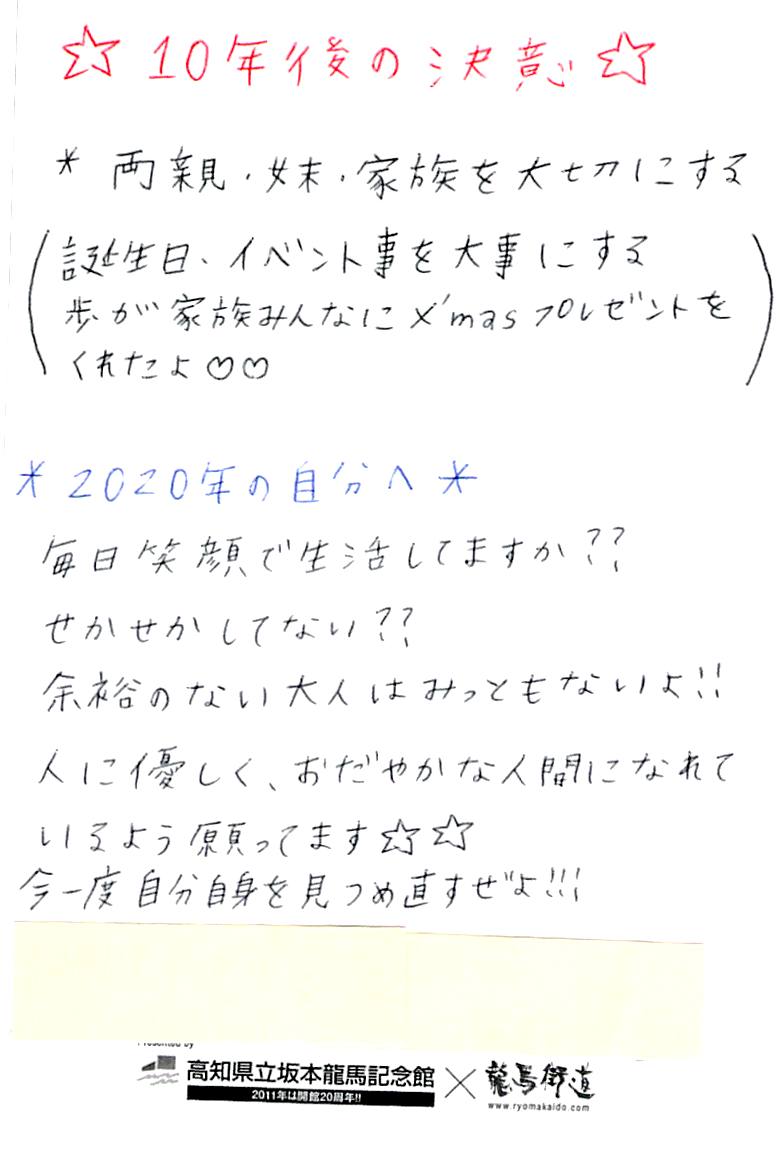 ☆10年後の決意☆
* 両親・妹・家族を大切にする
(誕生日、イベント事を大事にする
歩が家族みんなにX'masプレゼントを
くれたよ♡♡)
*2020年の自分へ*
毎日笑顔で生活してますか??
せかせかしてない??
余裕のない大人はみっともないよ!!
人に優しく、おだやかな人間になれて
いるよう願ってます☆☆
今一度自分自身を見つめ直すぜよ!!!
Presented by
高知県立坂本龍馬記念館×龍馬街道
2011年は開館20周年!!
www.ryomakaido.com